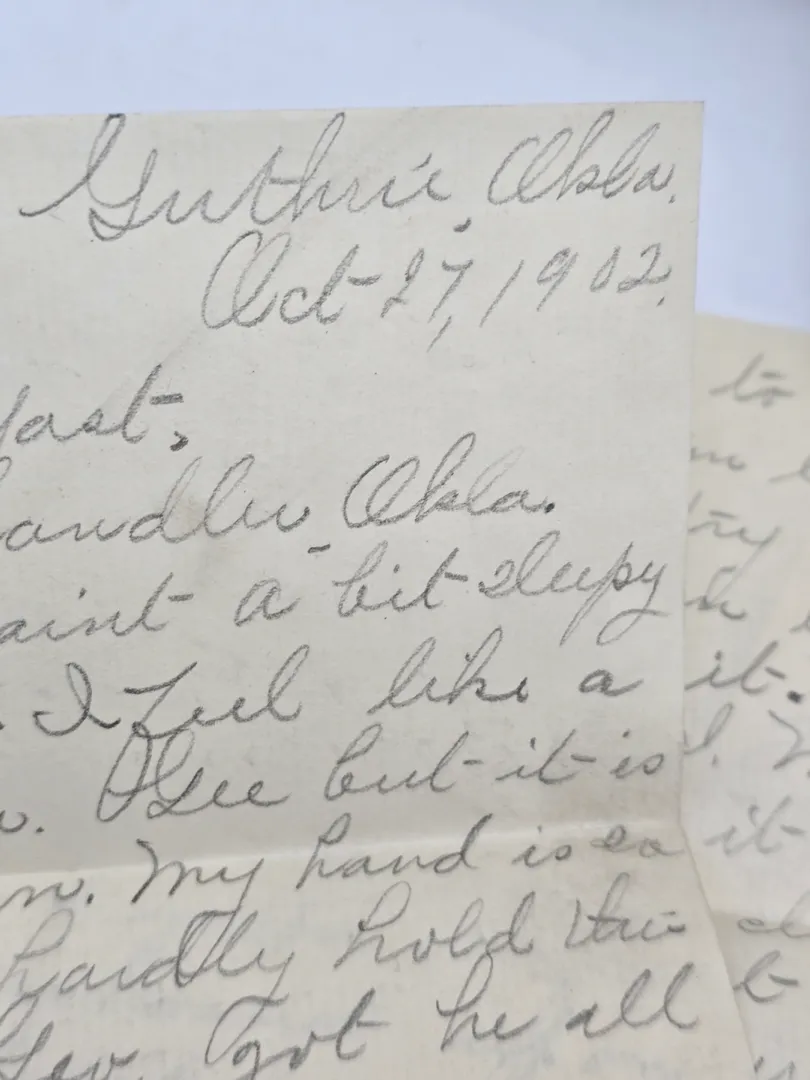 Guthrie, Okla.
Oct-27, 1902.
ast,
andler, Okla.
aint a bit sleepy
I feel like a
Gee but it is
n. My hand is so
hardly hold the
got he all
to
try
it.
it